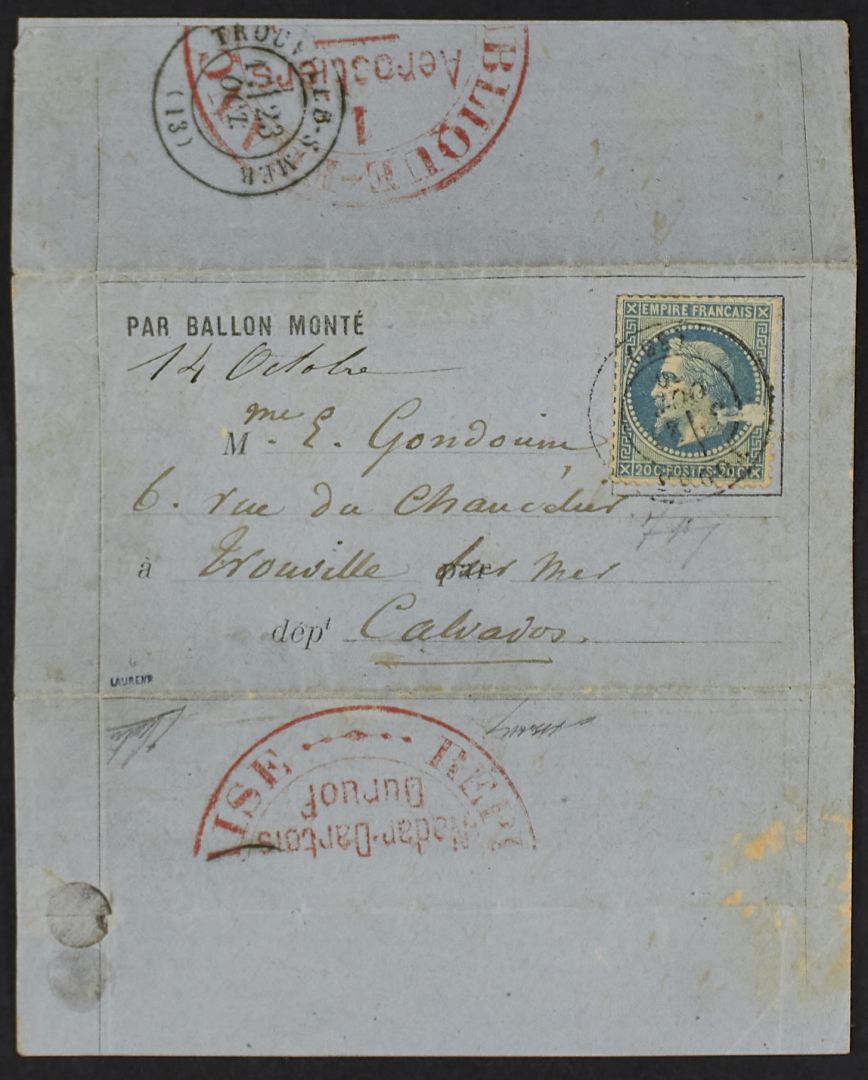 TROUVILLE-S-MER
1E
23
OCT.
(13)
BLIQUE
Aerostiers
1
PAR BALLON MONTÉ
14 Octobre
M me E. Gondouin
6. rue du Chancelier
à Trouville sur mer
par
dépt Calvados.
EMPIRE FRANÇAIS
20C POSTES 20C
LAURENS
ISE REPU
Nadar-Dartois
Duruof